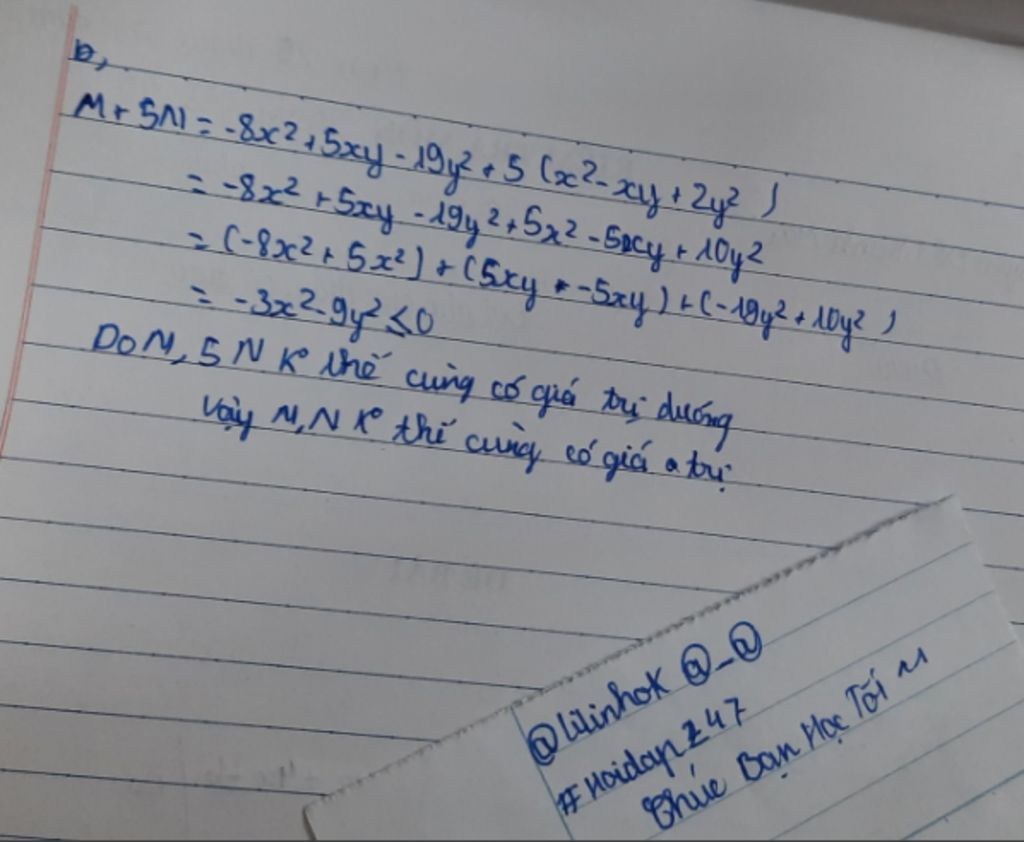 b,
M + 5N = -8x² + 5xy - 19y² + 5 (x² - xy + 2y² )
= -8x² + 5xy - 19y² + 5x² - 5xy + 10y²
= (-8x² + 5x²) + (5xy + -5xy) + (-19y² + 10y² )
= -3x² - 9y² ≤ 0
Do M, 5 N K° thể cùng có giá trị dướng
Vậy M, N K° thể cùng có giá trị
@Lilinhok @_@
#Hoidapz47
Chúc Bạn Học Tối